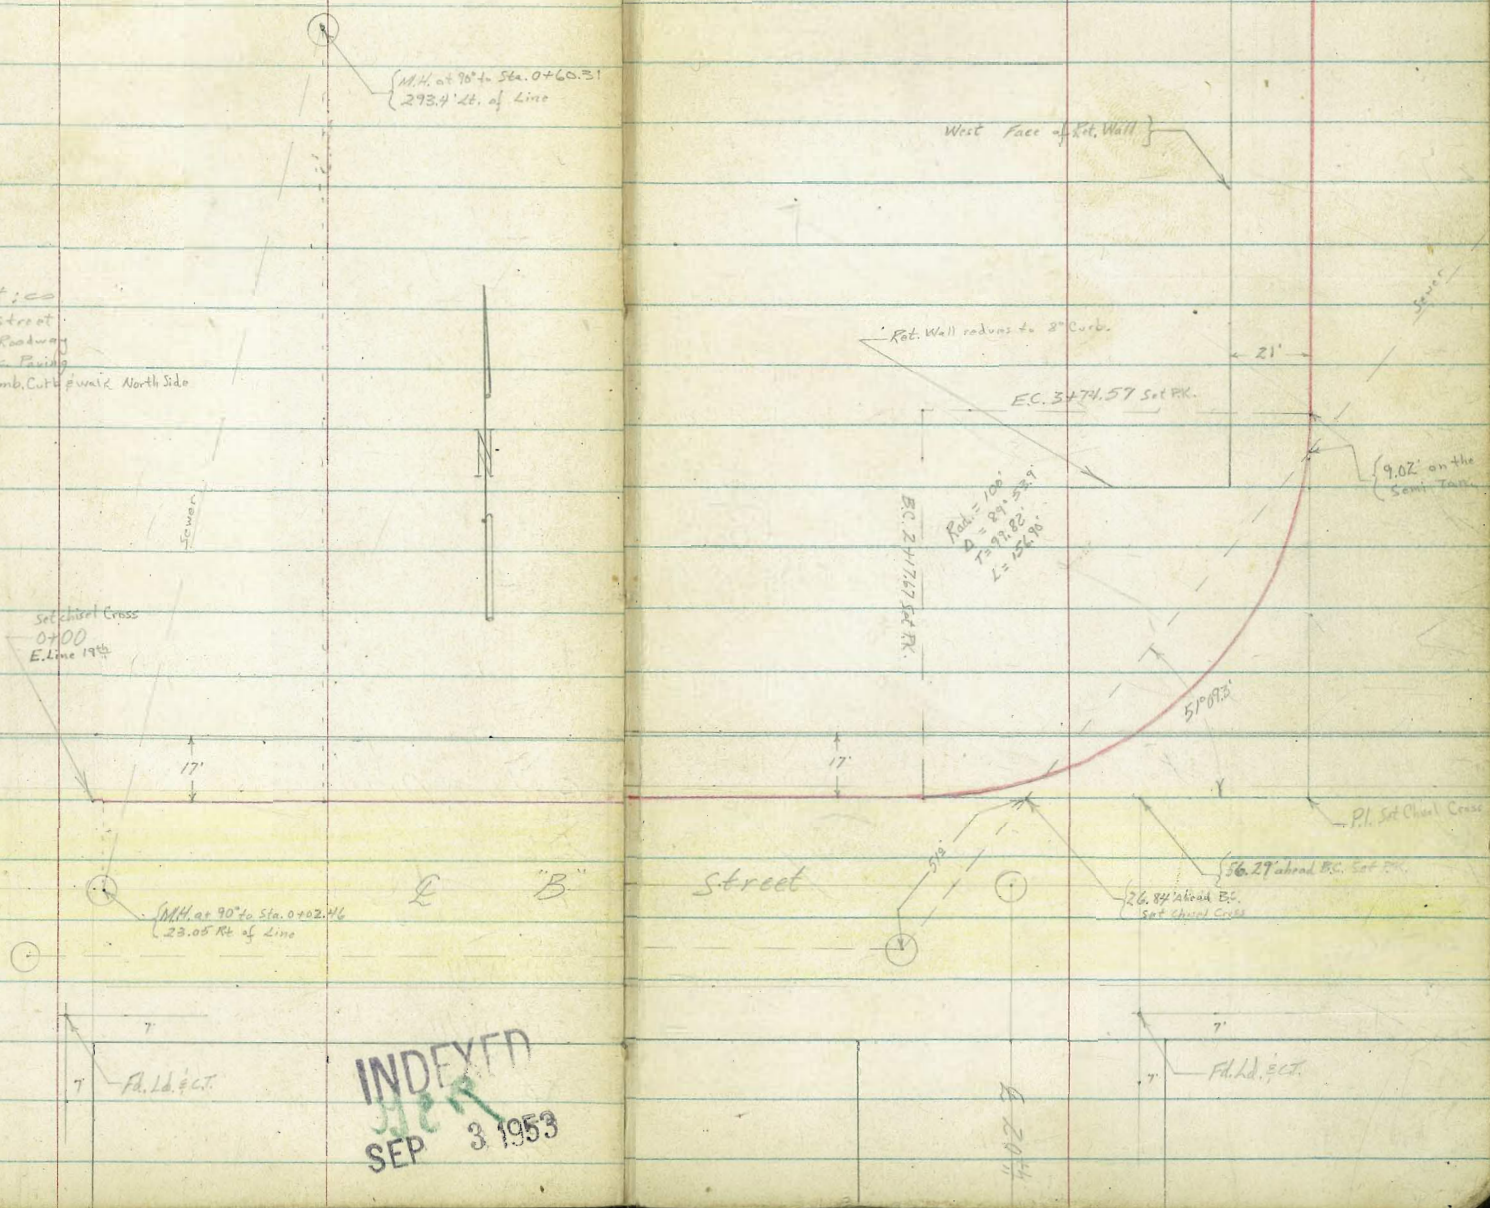 M.H. at 90° to Sta. 0+60.31
293.4' Lt. of Line
street
Roadway
Paving
Curb & walk North Side
Sewer
Set chisel Cross
0+00
E. Line 19th
17'
M.H. at 90° to Sta. 0+02.46
23.05 Rt of Line
℄ "B" Street
7'
7'
Fd. Ld. & C.T.
INDEXED
SEP 3 1953
West Face of Ret. Wall
Sewer
Ret. Wall reduces to 8" Curb.
21'
E.C. 3+74.57 Set P.K.
9.02' on the
Semi. Tan.
B.C. 2+17.67 Set P.K.
Rad. = 100'
Δ = 89° 53.9'
T = 99.82'
L = 156.90'
51° 09.3'
17'
P.I. Set Chisel Cross
56.29' ahead B.C. Set P.K.
26.84' Ahead B.C.
Set Chisel Cross
7'
7'
Fd. Ld. & C.T.
℄ 20th